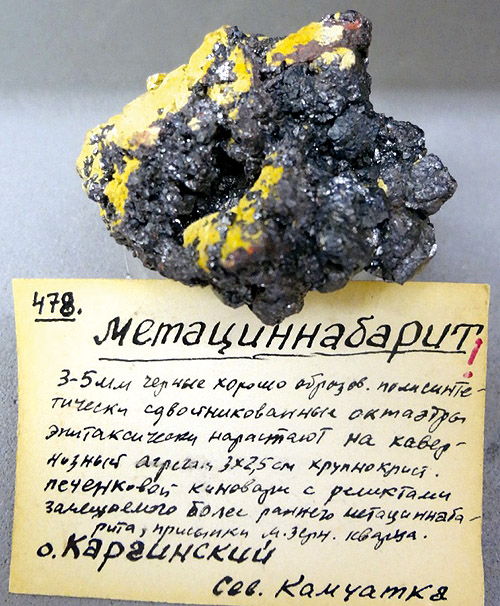 478.
метациннабарит!
3-5мм черные хорошо образов. полисинте-
тически сдвойникованные октаэдры
эпитаксически нарастают на кавер-
нозный агрегат 3х2,5см крупнокрист.
печенковой киновари с реликтами
замещаемого более раннего метациннаба-
рита, присыпки м.зерн. кварца.
о. Каргинский
Сев. Камчатка